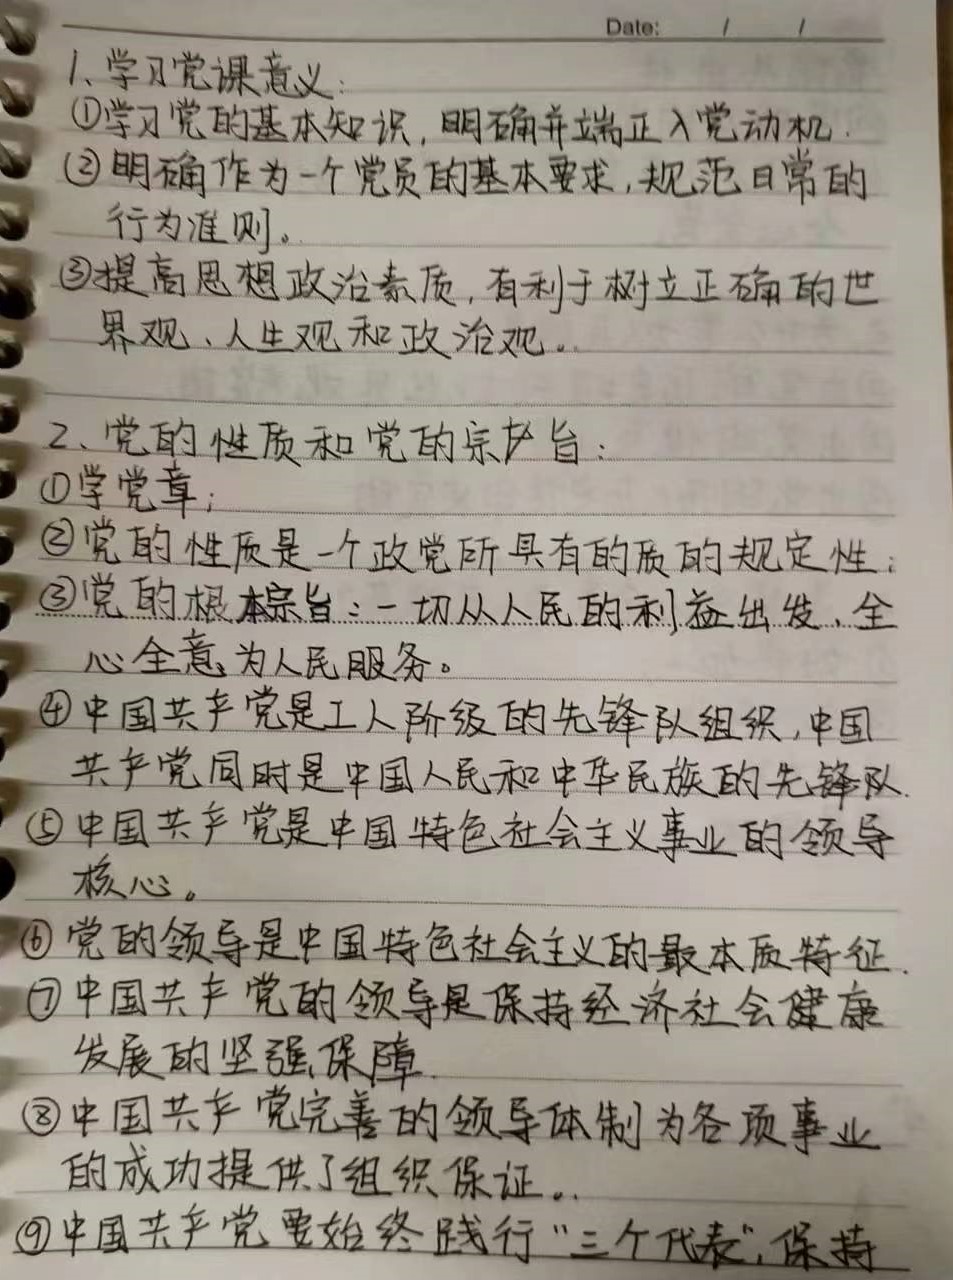 Date: / /
1、学习党课意义：
①学习党的基本知识，明确并端正入党动机.
②明确作为一个党员的基本要求，规范日常的
行为准则。
③提高思想政治素质，有利于树立正确的世
界观、人生观和政治观。
2、党的性质和党的宗旨：
①学党章；
②党的性质是一个政党所具有的质的规定性；
③党的根本宗旨：一切从人民的利益出发、全
心全意为人民服务。
④中国共产党是工人阶级的先锋队组织，中国
共产党同时是中国人民和中华民族的先锋队.
⑤中国共产党是中国特色社会主义事业的领导
核心。
⑥党的领导是中国特色社会主义的最本质特征.
⑦中国共产党的领导是保持经济社会健康
发展的坚强保障.
⑧中国共产党完善的领导体制为各项事业
的成功提供了组织保证。
⑨中国共产党要始终践行“三个代表”，保持